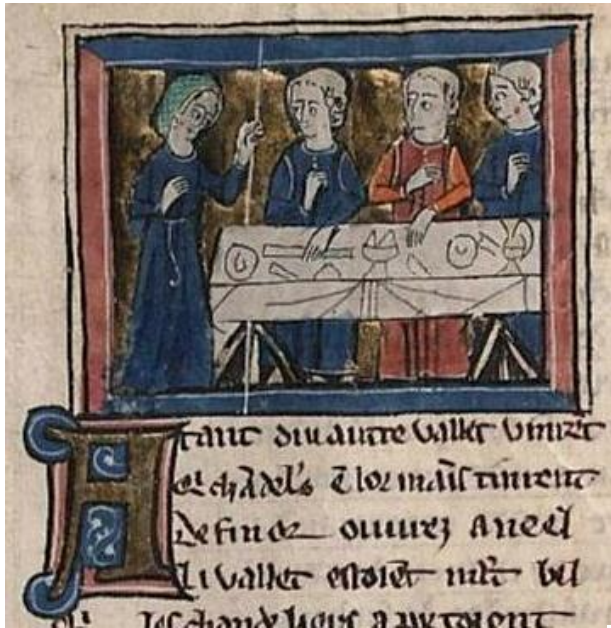 Atant dui autre vallet vinrēt
Qi chādel's ē lor maīs tinrent
De fin or ouurez a neel
Li vallet estoiēt mlt bel
les chandeliers aportoient